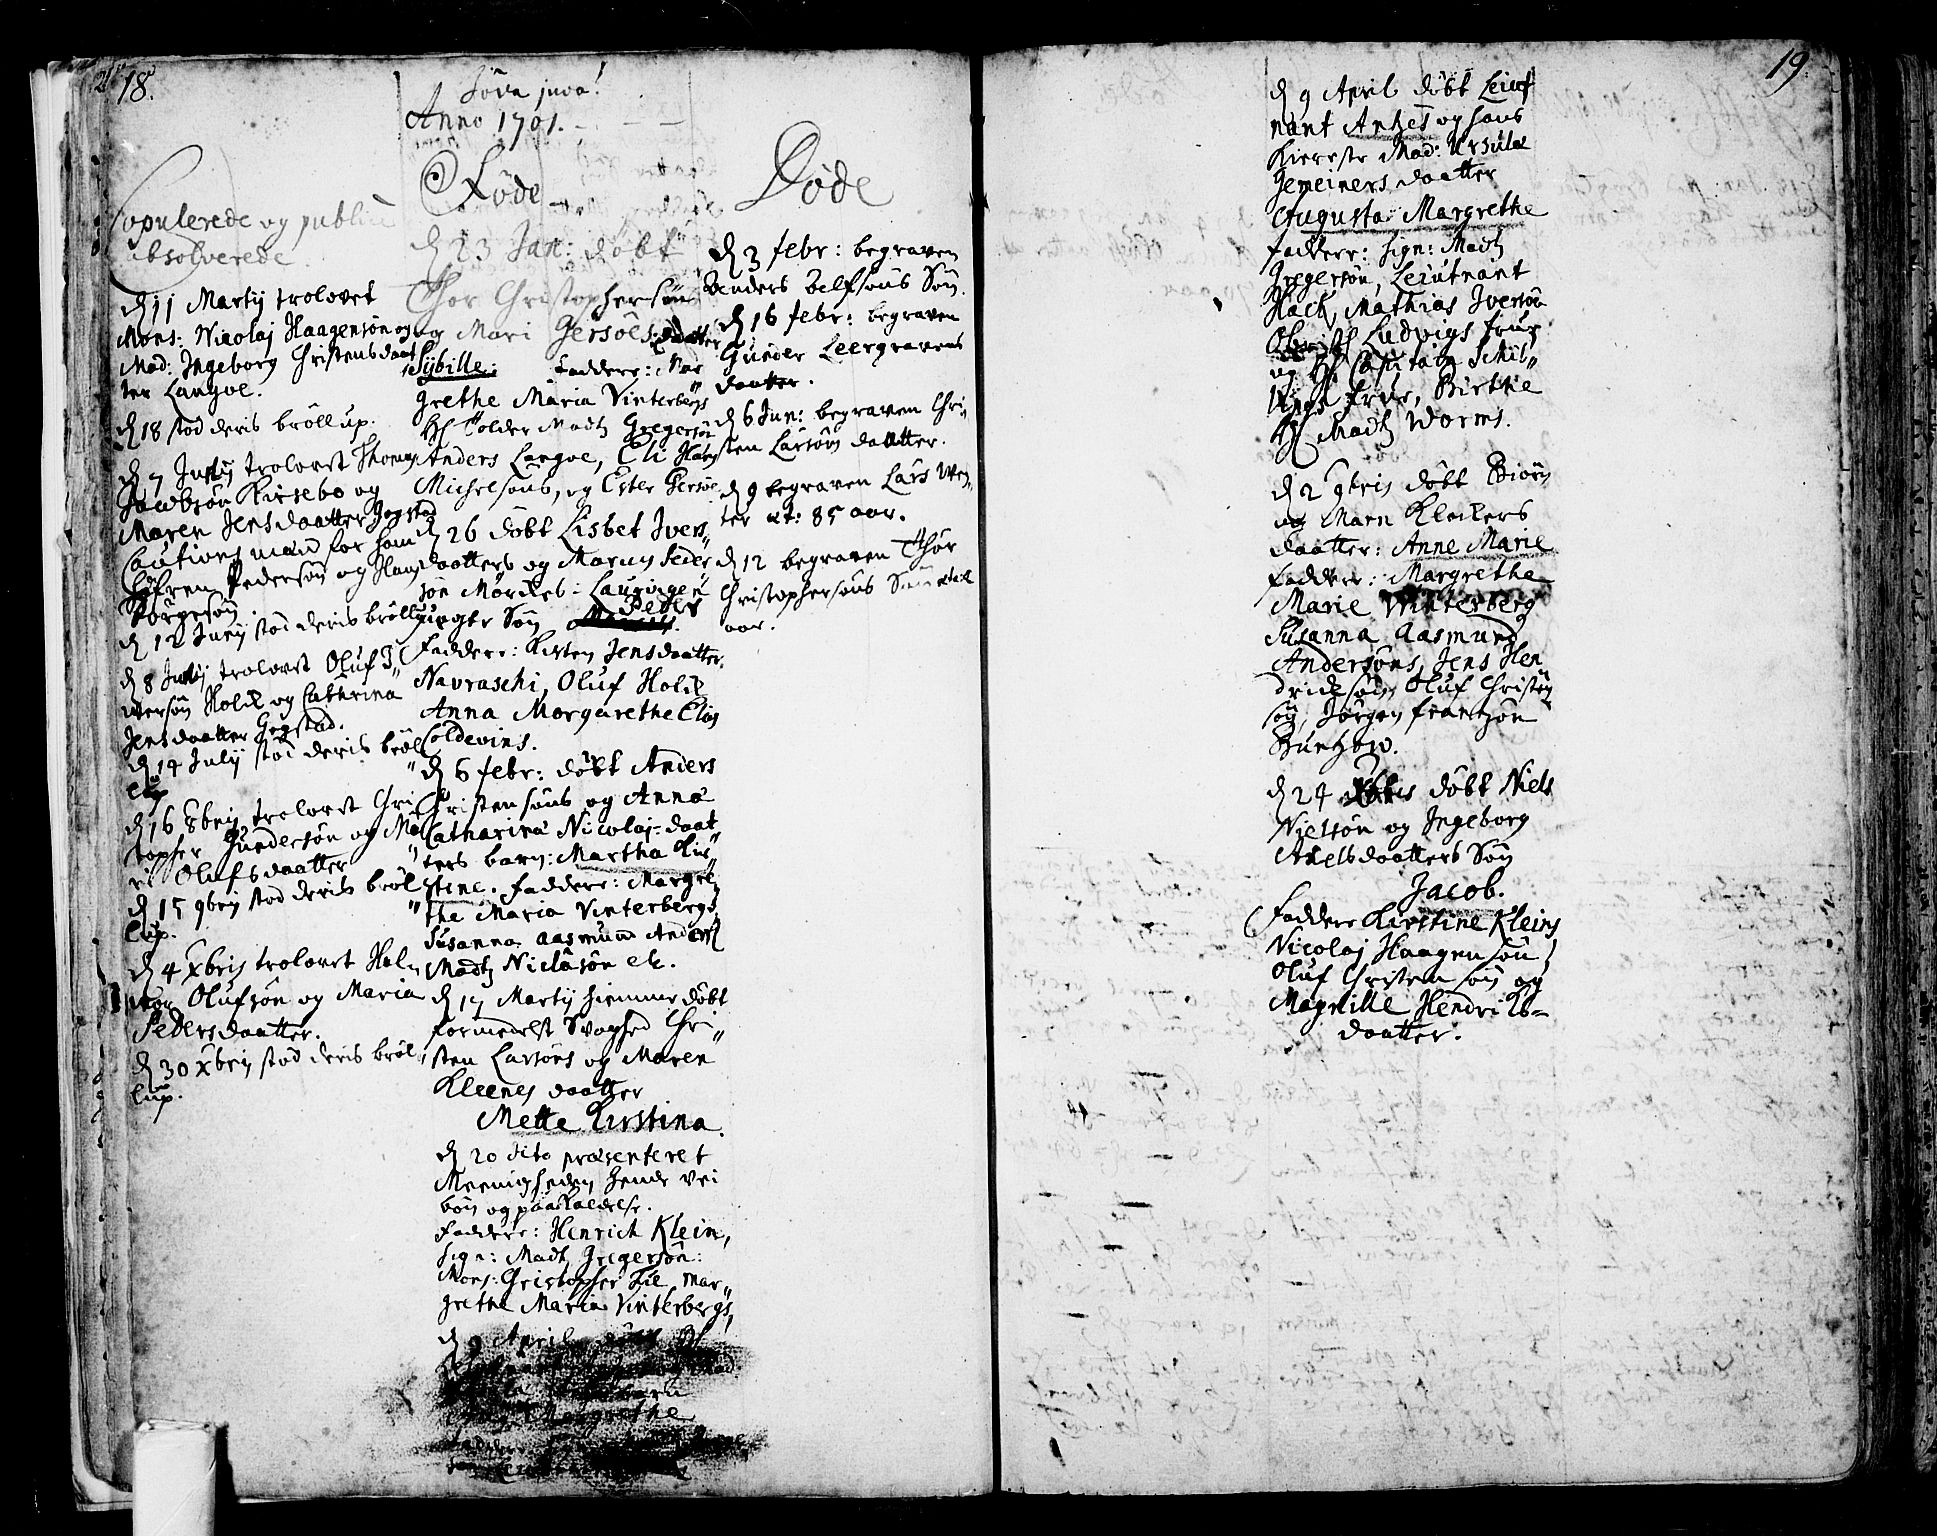 18.
Copulerede og publicè
absolverede
d 11 Martij trolovet
Mons: Nicolaj Haagensøn og
Mad: Ingeborg Christensdaat
ter Langoe.
d 18 stod deris brøllup.
d 7 Julij trolovet Thomas
Jacobsøn Kirsebo og
Maren Jensdaatter Jegstad
Cautions mænd for ham
Søfren Pedersøn og Hans
Jørgesøn.
d 12 Julij stod deris brøllup
d 8 Julij trolovet Oluf I„
wersøn Holck og Cathrina
Jensdaatter Gegstad.
d 14 Julij stod deris brøl„
lup
d 16 8brij trolovet Chri„
topher Gundersøn og Ma„
ri Olufsdaatter
d 15 9brij stod deris brøl„
lup.
d 4 Xbrij trolovet Hal„
vor Olufsøn og Maria
Pedersdaatter.
d 30 xbrij stod deris brøl„
lup.
Jova juva!
Anno 1701.
Føde
d 23 Jan: døbt
Thor Christophersøns
og Mari Gersøes Daatter
Sybille: Faddere: Mar
grethe Maria Vinterbergs
Hr Tolder Madtz Gregersøn
Anders Langoe, Eli Hans
Michelsøns, og Ester Gersøe
d 26 døbt Lisbet Ivers„
daatters og Marcus Peder
søn Mørckes: Lauringen
uægte Søn Peder
Faddere: Kirsten Jensdaatter
Navraschi, Oluf Holck
Anna Margarethe Elias
Coldevins.
d 6 febr: døbt Anders
Christensøns og Anna
Catharina Nicolaj-daat
ters barn: Martha Kir„
stine. Faddere: Margre„
the Maria Vinterbergs
Susanna Aasmund Anders
Madtz Niclasøn etc.
d 17 Martij hiemme døbt
formedelst Svaghed Chri„
sten Larsøns og Maren
Kleenes daatter
Mette Kirstina.
d 20 dito præsenteret
Meenigheden hende ved
bøn og paakaldelse.
Faddere: Henrich Klein,
Sign: Madtz Gregersøn:
Mons: Christopher Fie, Mar„
grethe Maria Vinterbergs,
d 9 April døbt
Margrethe
Døde
d 3 febr: begraven
Anders Belfsøns Søn.
d 16 febr: begraven
Gunder Leergravens
daatter.
d 6 Jun: begraven Chri„
sten Larsøns daatter.
d 9 begraven Lars Wen„
ter æt: 85 aar.
d 12 begraven Thor
Christophersøns Søn
aar.
19.
d 9 April døbt Leiut
nant Ankes og hans
Kiereste Mad: Ursulæ
Gemeiners daatter
Augusta Margrethe
Faddere: Sign: Madtz
Gregersøn, Leiutnant
Hack, Mathias Iversøn
Ludvigs frue
og Hr Capitain Schil„
frue, Birthe
Hr Madtz Worms.
d 2 9bris døbt Biørn
og Maren Klockers
daatter: Anne Marie
Faddere: Margrethe
Marie Winterberg
Susanna Aasmund
Andersøns, Jens Hen
dricksøn Oluf Christen
søn, Jørgen Frantzøn
Buntzow.
d 24 døbt Niels
Nielsøn og Ingeborg
Axelsdaatters Søn
Jacob.
Faddere Kirstine Kleins
Nicolaj Haagensøn
Oluf Christensøn og
Magnille Hendriks=
daatter.